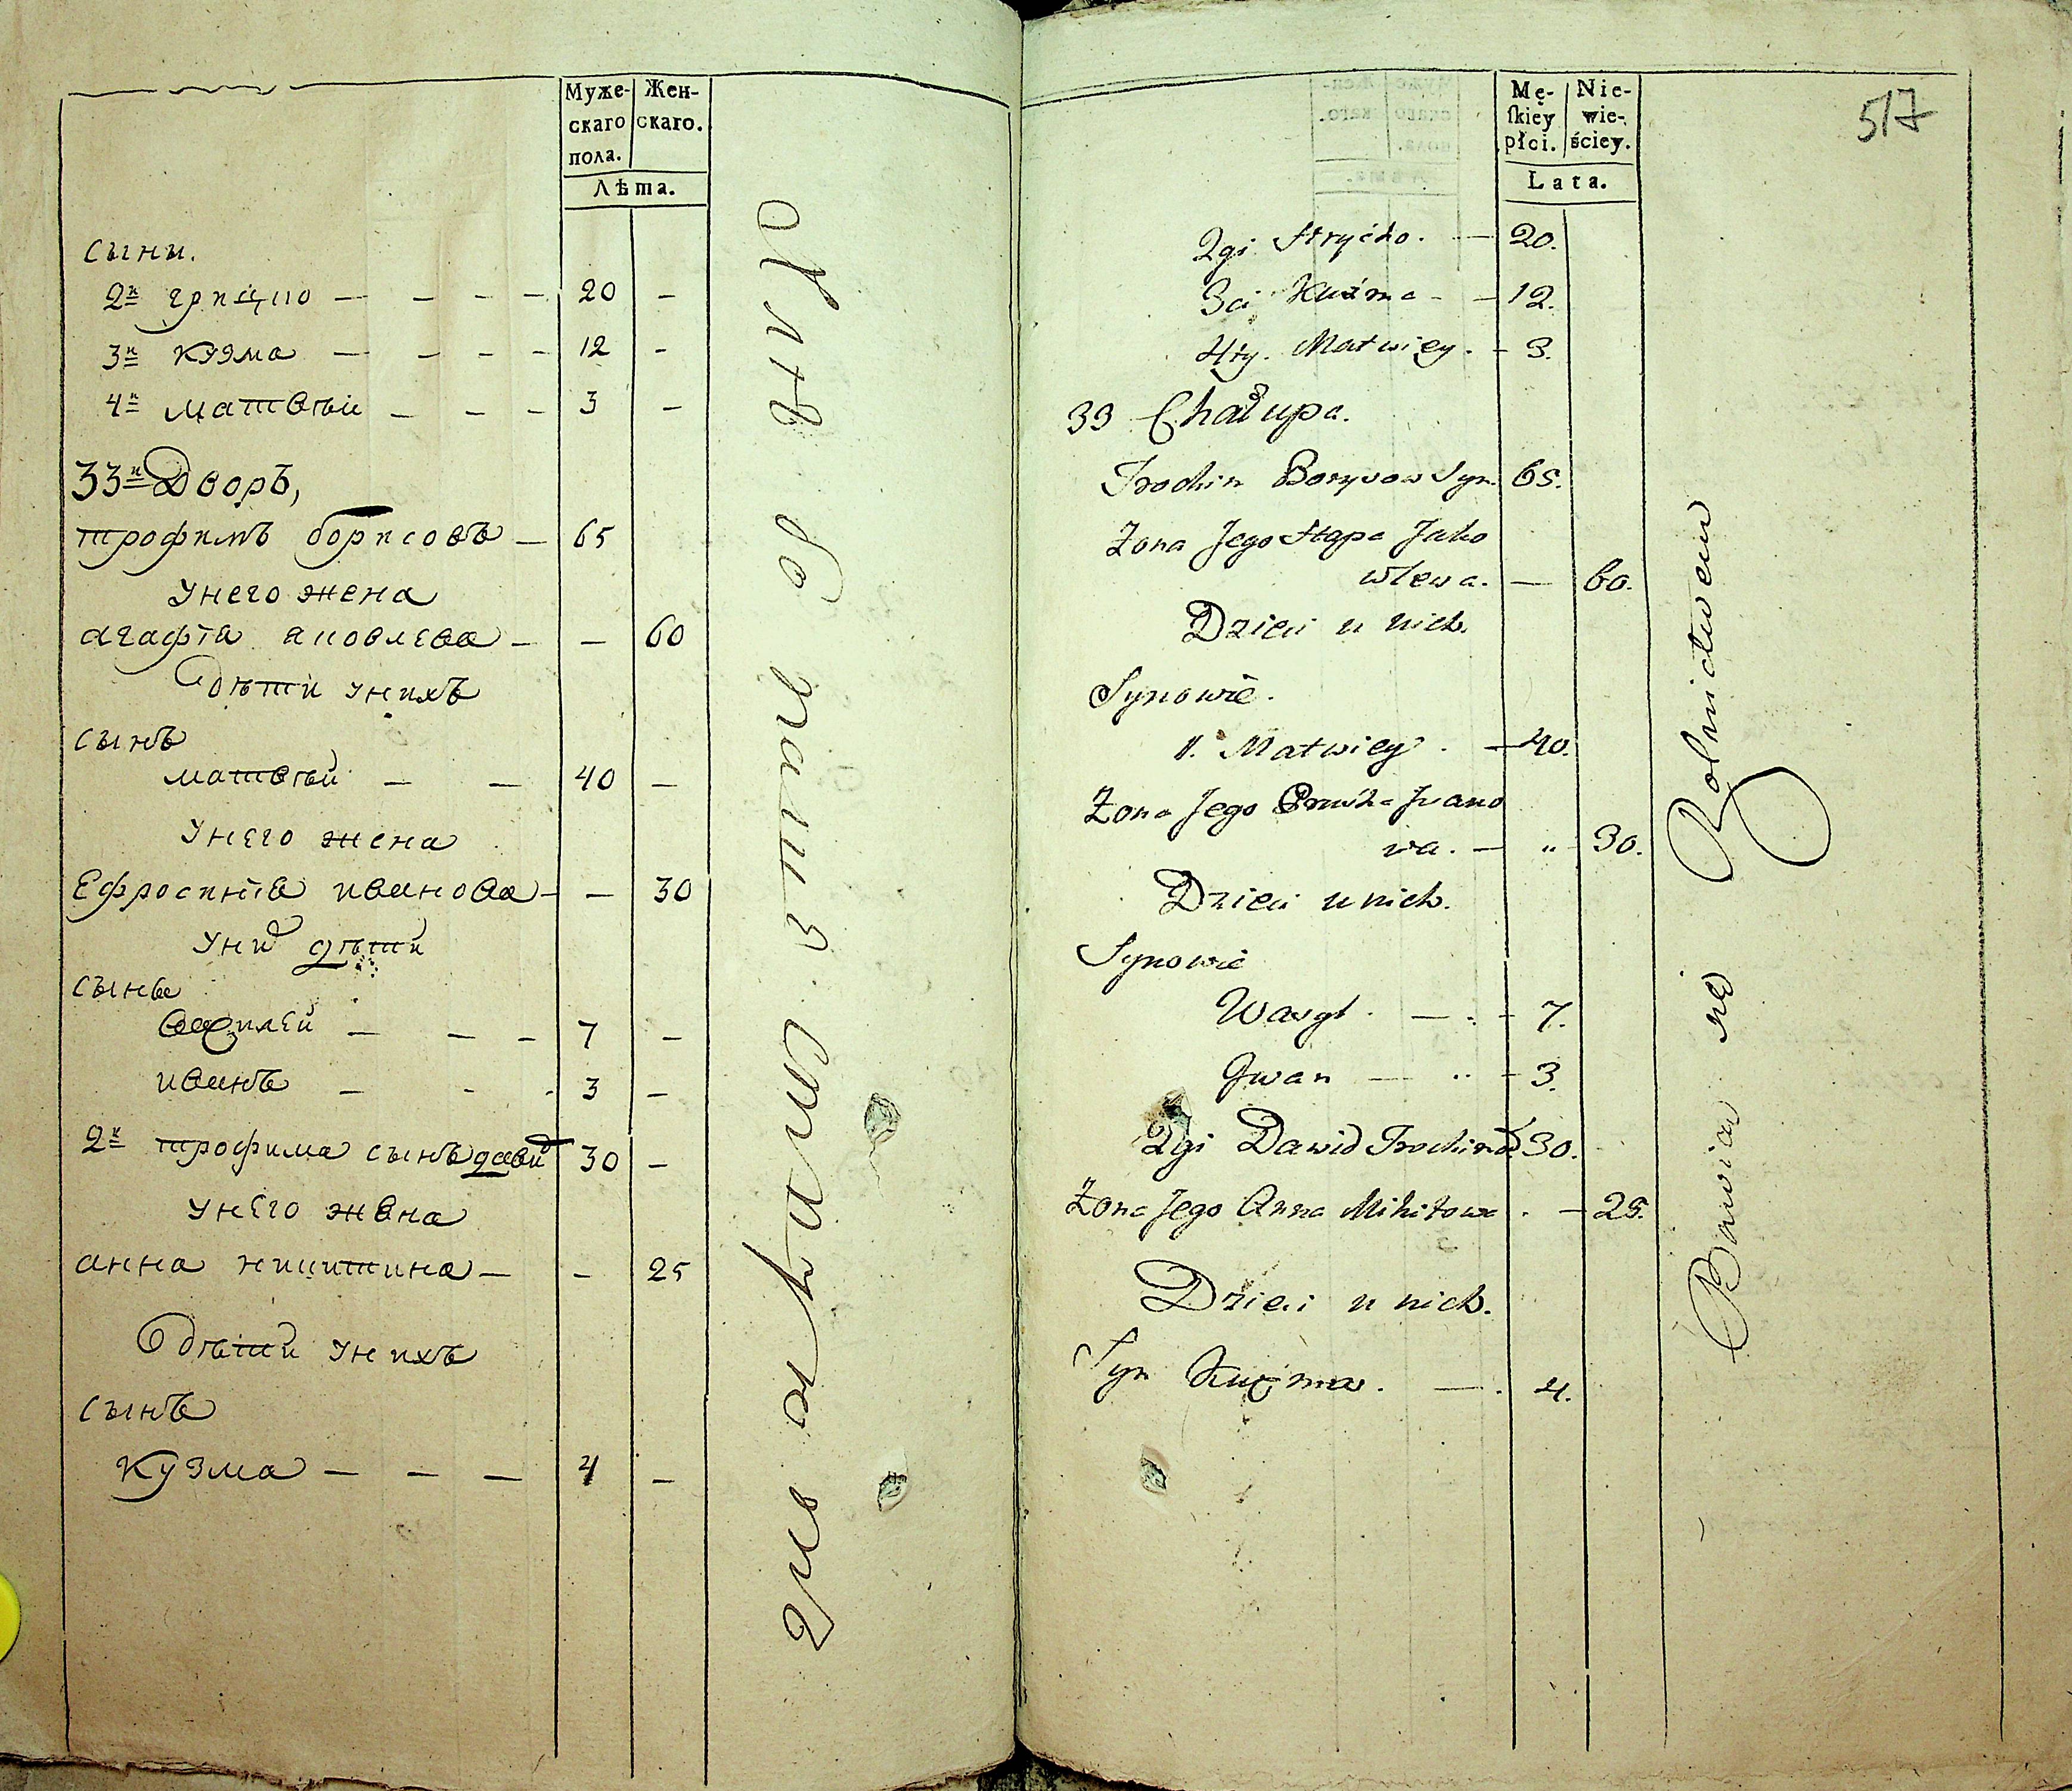 Муже-
скаго
пола.
Жен-
скаго.
Лѣта.
сыны.
2й грицко — — — — 20 —
3й кузма — — — — 12 —
4й матвѣй — — — 3 —
33й Дворъ,
трофимъ борисовъ — 65
Унего жена
агафїя яковлева — — 60
дѣти унихъ
сынъ
матвѣй — — 40 —
Унего жена
Ефросинїя иванова — — 30
Уних дѣти
сынъя
василей — — — 7 —
иванъ — - - 3 —
2й трофима сынъ давид 30 —
унего жена
анна никитина — — 25
дѣти унихъ
сынъ
кузма — — — 4 —
Mę-
ſkiey
płci.
Nie-
wie-
ściey.
Lata.
517
2gi Hryćko. — 20.
3ci Kuźma - — 12.
4ty. Matwiey. - 3.
33 Chałupa.
Trochim Borysow Syn. 65.
Żona Jego Hapa Jako
wlewa. — 60.
Dzieci u nich.
Synowie.
1. Matwiey. — 40.
Żona Jego Pruzka Iwano
wa. — " 30.
Dzieci u nich.
Synowie
Wasyl. — 7.
Iwan — 3.
2gi Dawid Trochimow 30.
Żona Jego Anna Mikitowa. — 25.
Dzieci u nich.
Syn Kuźma. — 4.
Bawia się Rolnictwem